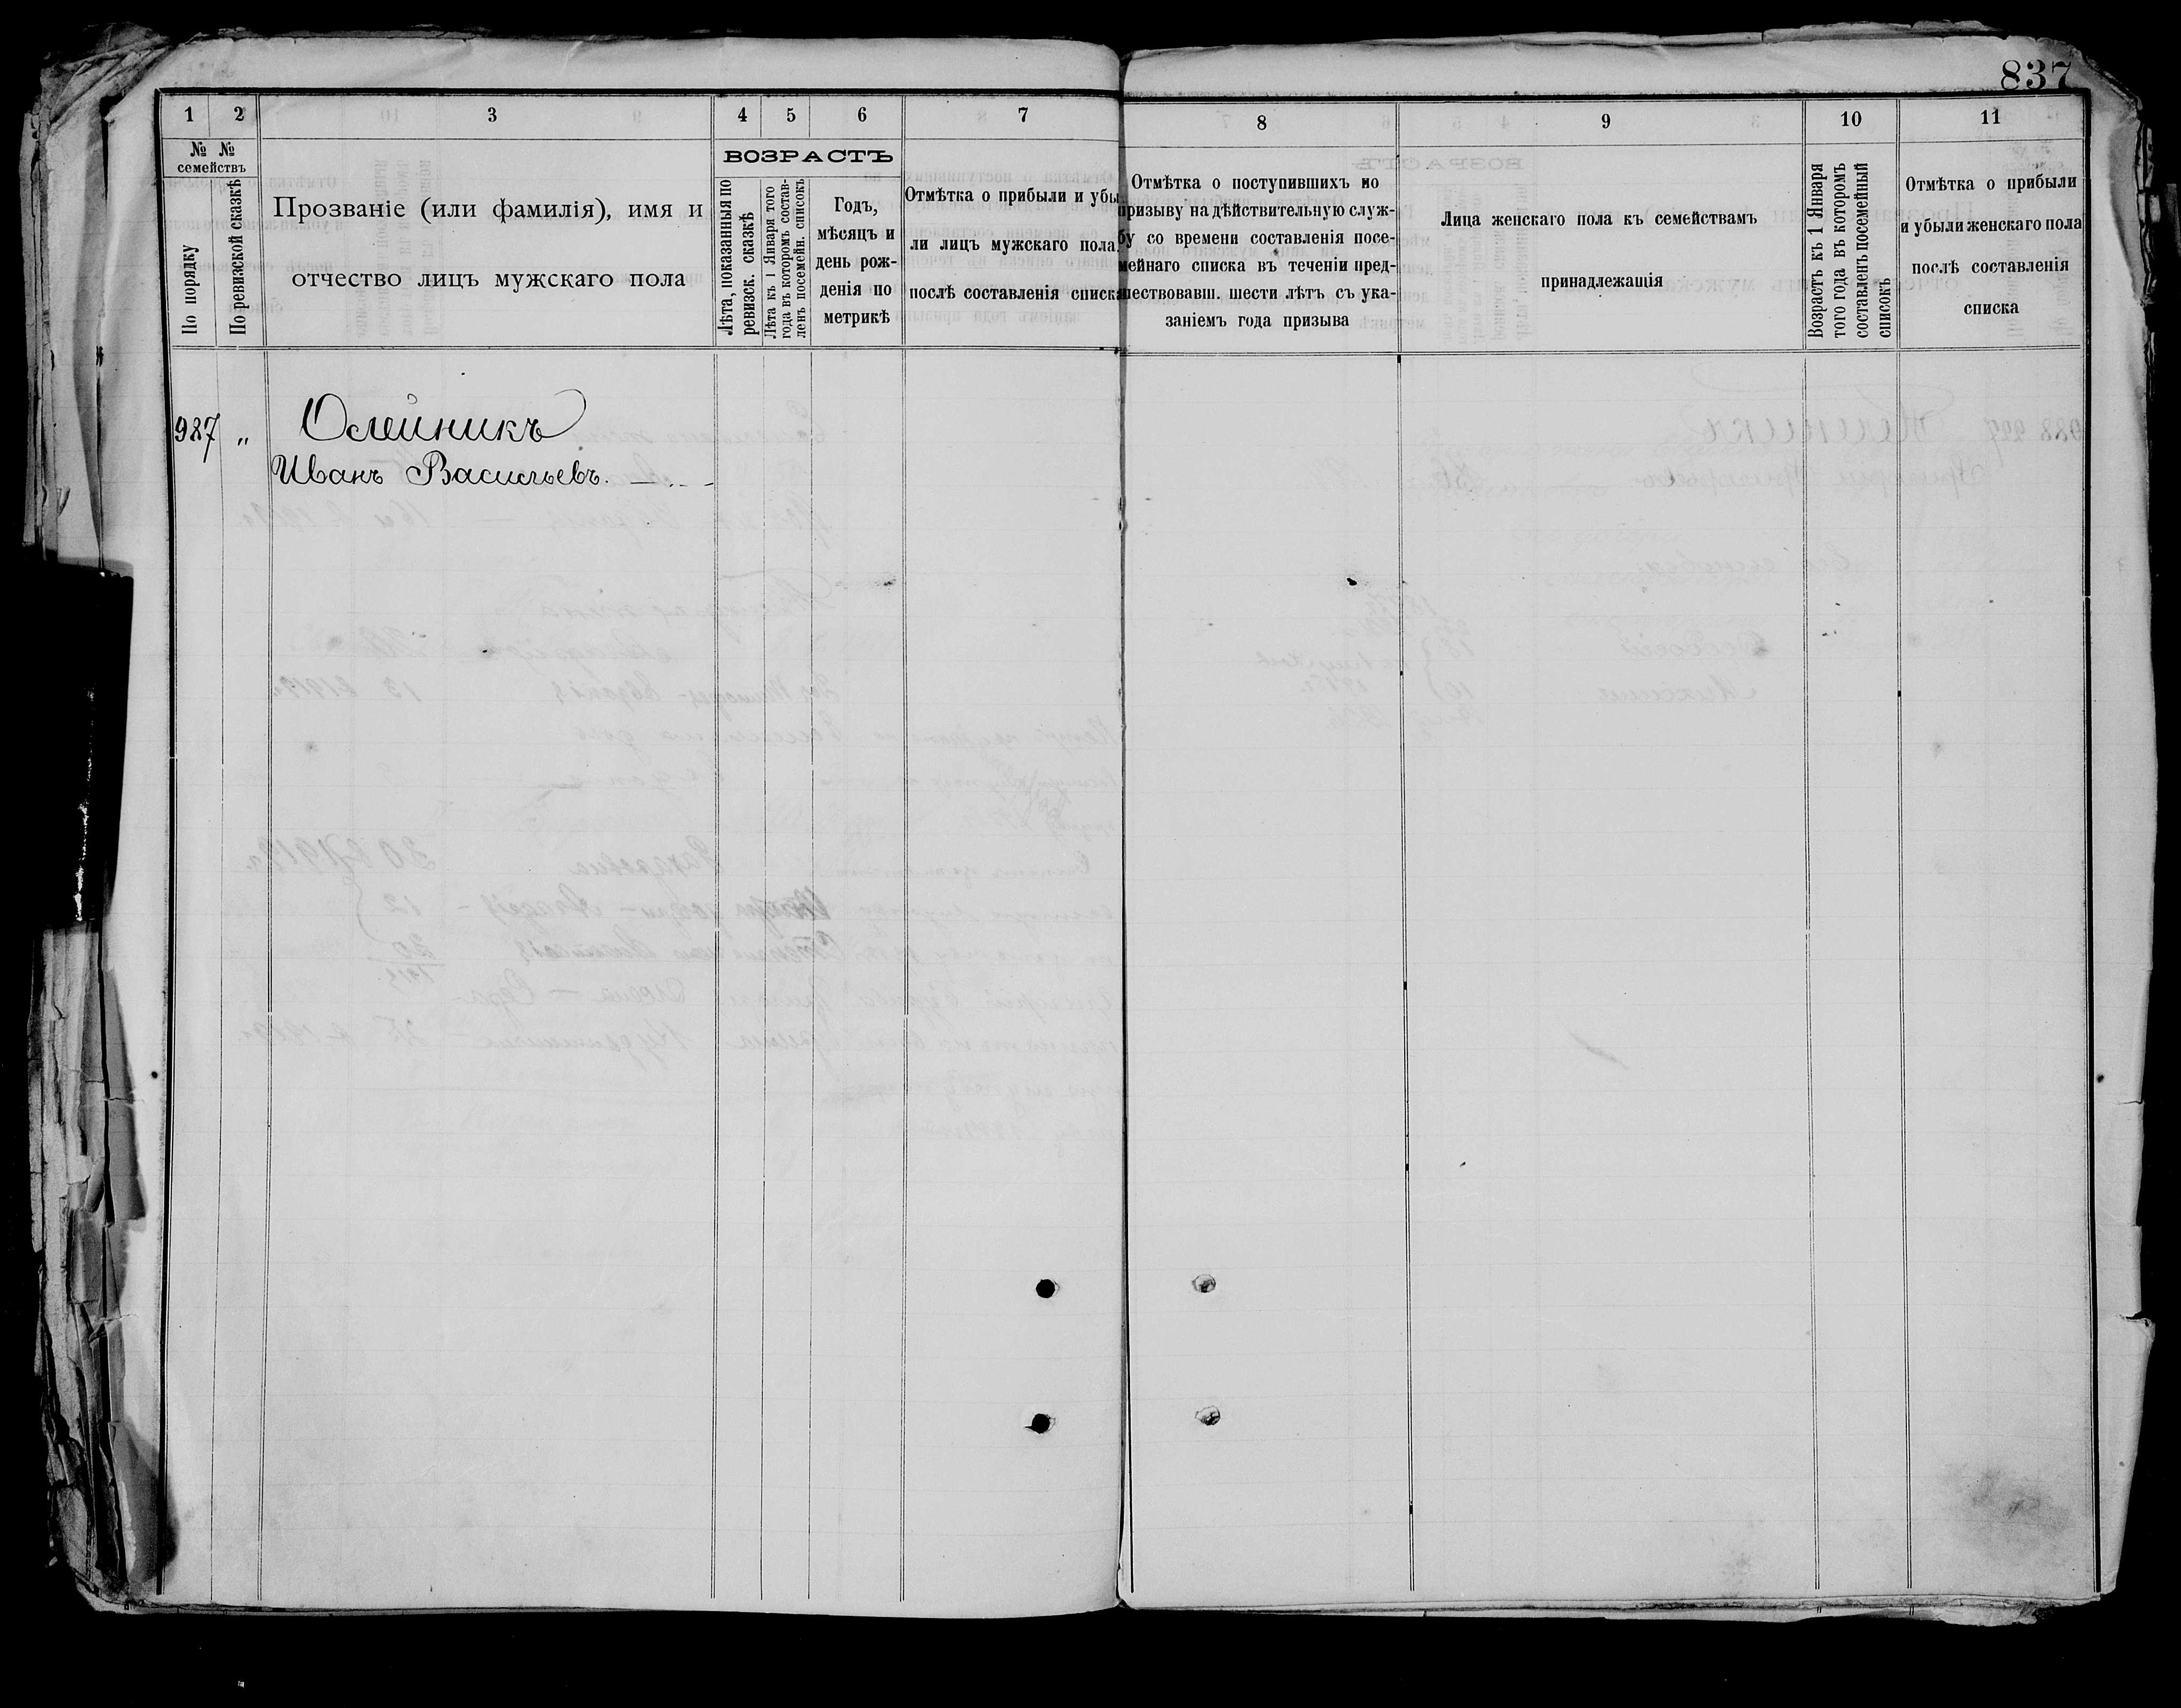 837
1 2 3 4 5 6 7 8 9 10 11
№ № семействъ
По порядку
По ревизской сказкѣ
Прозваніе (или фамилія), имя и
отчество лицъ мужскаго пола
ВОЗРАСТЪ
Лѣта, показанныя по
ревизск. сказкѣ
Лѣта къ 1 Января того
года въ которомъ состав-
ленъ посемейн. списокъ
Годъ,
мѣсяцъ и
день рож-
денія по
метрикѣ
Отмѣтка о прибыли и убы
ли лицъ мужскаго пола
послѣ составленія списка
Отмѣтка о поступившихъ по
призыву на дѣйствительную служ-
бу со времени составленія посе-
мейнаго списка въ теченіи пред-
шествовавш. шести лѣтъ съ ука-
заніемъ года призыва
Лица женскаго пола къ семействамъ
принадлежащія
Возрастъ къ 1 Января
того года въ которомъ
составленъ посемейный
списокъ
Отмѣтка о прибыли
и убыли женскаго пола
послѣ составленія
списка
987 „ Олейникъ
Иванъ Васильевъ. —